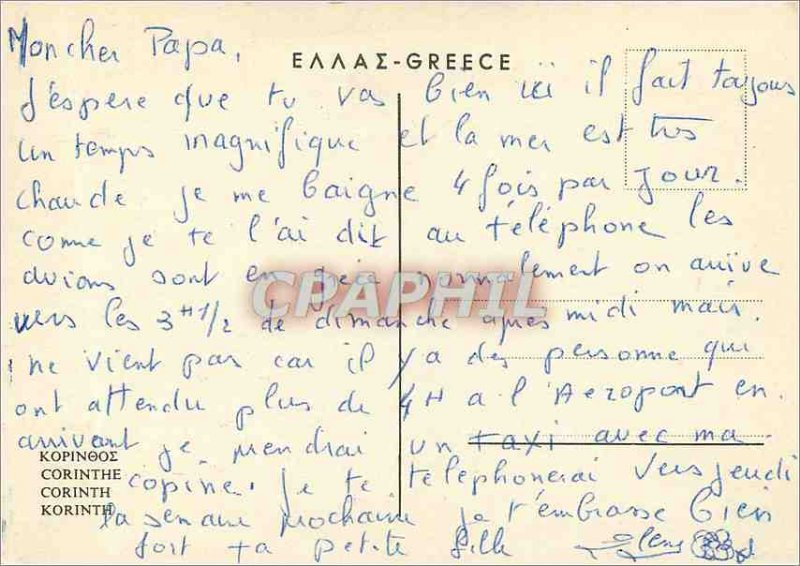 Mon cher Papa,
ΕΛΛΑΣ-GREECE
J'espere que tu vas bien ici il fait toujours
un temps magnifique et la mer est très
chaude je me baigne 4 fois par jour.
come je te l'ai dit au téléphone les
avions sont en normalement on arrive
vers les 3H1/2 de dimanche après midi mais.
ne vient pas car il y a des personne qui
ont attendu plus de 4H a l'Aeroport en
arrivant je prendrai un taxi avec ma
copine. je te telephonerai vers jeudi
la semaine prochaine je t'embrasse bien
fort ta petite fille
ΚΟΡΙΝΘΟΣ
CORINTHE
CORINTH
KORINTH
CPAPHIL